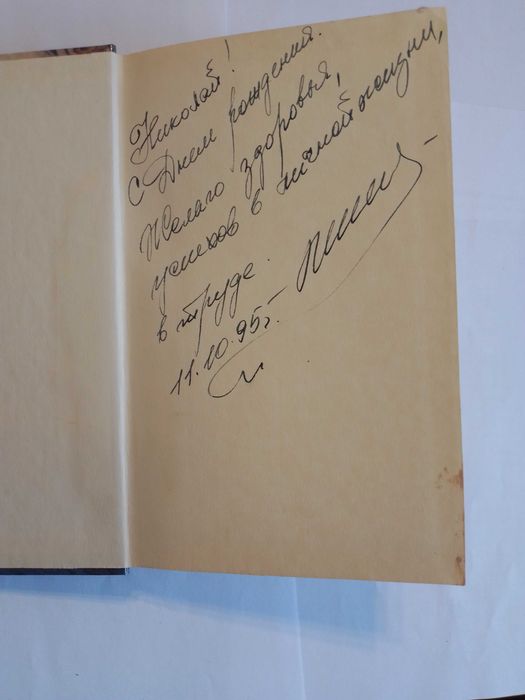 Николай!
С Днем рождения.
Желаю здоровья,
успехов в личной жизни,
в труде.
11.10.95г.